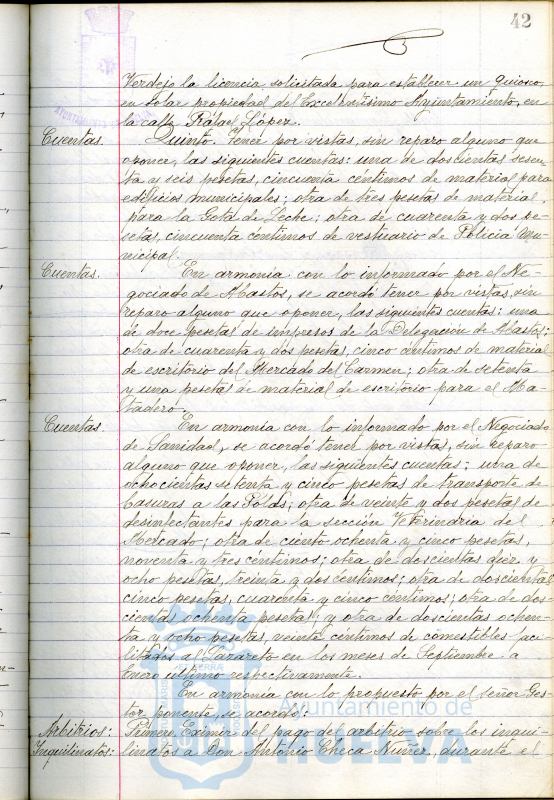 42
Verdejo la licencia solicitada para establecer un quiosco
en solar propiedad del Excelentísimo Ayuntamiento, en
la calle Rafael López.
Cuentas. Quinto. Tener por vistas, sin reparo alguno que
oponer, las siguientes cuentas: una de doscientas sesen-
ta y seis pesetas, cincuenta céntimos de material para
edificios municipales; otra de tres pesetas de material
para la Gota de Leche; otra de cuarenta y dos pe-
setas, cincuenta céntimos de vestuario de Policía Mu-
nicipal.
Cuentas. En armonia con lo informado por el Ne-
gociado de Abastos, se acordó tener por vistas, sin
reparo alguno que oponer, las siguientes cuentas: una
de doce pesetas de impresos de la Delegación de Abastos;
otra de cuarenta y dos pesetas, cinco céntimos de material
de escritorio del Mercado del Carmen; otra de setenta
y una pesetas de material de escritorio para el Ma-
tadero.
Cuentas. En armonia con lo informado por el Negociado
de Sanidad, se acordó tener por vistas, sin reparo
alguno que oponer, las siguientes cuentas: una de
ochocientas setenta y cinco pesetas de transporte de
basuras a las
otra de veinte y dos pesetas de
desinfectantes para la sección Veterinaria del
Mercado; otra de ciento ochenta y cinco pesetas,
noventa y tres céntimos; otra de doscientas diez y
ocho pesetas, treinta y dos céntimos; otra de doscientas
cinco pesetas, cuarenta y cinco céntimos; otra de dos-
cientas ochenta pesetas; y otra de doscientas ochen-
ta y ocho pesetas, veinte céntimos de comestibles faci-
litados al Lazareto en los meses de Septiembre a
Enero último respectivamente.
En armonia con lo propuesto por el señor Ges-
tor ponente, se acordó:
Arbitrios: Primero. Eximir del pago del arbitrio sobre los inqui-
Inquilinatos: linatos a Don Antonio Checa Nuñez, durante el
Ayuntamiento de
HUELVA